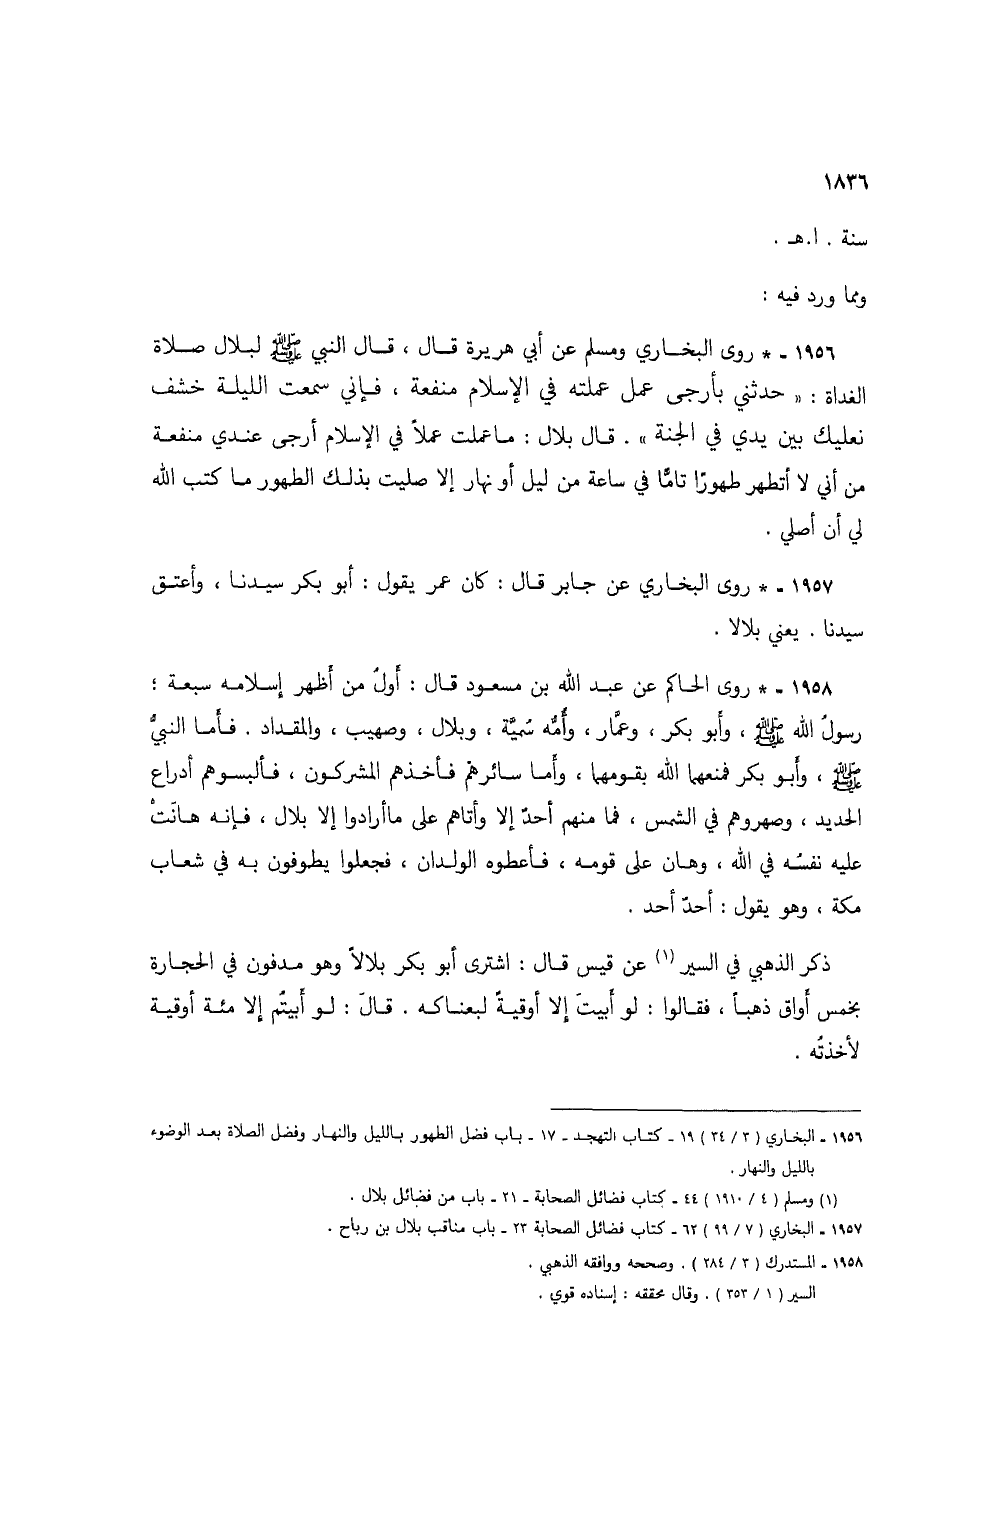 ١٨٣٦
سنة . ا.هـ .
ومما ورد فيه :
١٩٥٦ ـ * روى البخاري ومسلم عن أبي هريرة قال ، قال النبي ﷺ لبلال صلاة
الغداة : « حدثني بأرجى عمل عملته في الإسلام منفعة ، فإني سمعت الليلة خشف
نعليك بين يدي في الجنة » . قال بلال : ماعملت عملاً في الإسلام أرجى عندي منفعة
من أني لا أتطهر طهورًا تامًّا في ساعة من ليل أو نهار إلا صليت بذلك الطهور ما كتب الله
لي أن أصلي .
١٩٥٧ ـ * روى البخاري عن جابر قال : كان عمر يقول : أبو بكر سيدنا ، وأعتق
سيدنا . يعني بلالا .
١٩٥٨ ـ * روى الحاكم عن عبد الله بن مسعود قال : أَولُ من أَظهر إسلامه سبعة ؛
رسولُ الله ﷺ ، وأَبو بكر ، وعمَّار ، وأُمُّه سُميَّة ، وبلال ، وصهيب ، والمقداد . فأَما النبيُّ
ﷺ ، وأَبو بكر فمنعهما الله بقومهما ، وأَما سائرهم فأخذهم المشركون ، فألبسوهم أدراع
الحديد ، وصهروهم في الشمس ، فما منهم أحدٌ إلا وأتاهم على ماأرادوا إلا بلال ، فإنه هانَتْ
عليه نفسُه في الله ، وهان على قومه ، فأعطوه الولدان ، فجعلوا يطوفون به في شعاب
مكة ، وهو يقول : أحدٌ أحد .
ذكر الذهبي في السير (١) عن قيس قال : اشترى أبو بكر بلالاً وهو مدفون في الحجارة
بخمس أَواق ذهباً ، فقالوا : لو أبيتَ إلا أوقيةً لبعناكه . قالَ : لو أَبيتُم إلا مئة أوقية
لأخذتُه .
١٩٥٦ ـ البخاري ( ٣ / ٣٤ ) ١٩ ـ كتاب التهجد ـ ١٧ ـ باب فضل الطهور بالليل والنهار وفضل الصلاة بعد الوضوء
بالليل والنهار .
(١) ومسلم ( ٤ / ١٩١٠ ) ٤٤ ـ كتاب فضائل الصحابة ـ ٢١ ـ باب من فضائل بلال .
١٩٥٧ ـ البخاري ( ٧ / ٩٩ ) ٦٢ ـ كتاب فضائل الصحابة ٢٣ ـ باب مناقب بلال بن رباح .
١٩٥٨ ـ المستدرك ( ٣ / ٢٨٤ ) . وصححه ووافقه الذهبي .
السير ( ١ / ٣٥٣ ) . وقال محققه : إسناده قوي .